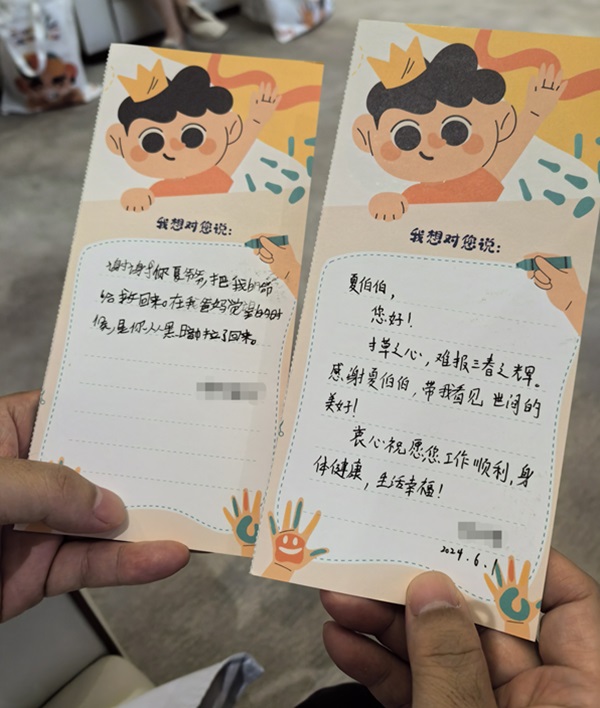 我想对您说:
谢谢你夏爷爷,把我的命
给救回来。在我爸妈绝望的时
候,是你从黑暗中拉了回来。
我想对您说:
夏伯伯,
您好!
寸草之心,难报三春之辉。
感谢夏伯伯,带我看见世间的
美好!
衷心祝愿您工作顺利,身
体健康,生活幸福!
2024.6.1